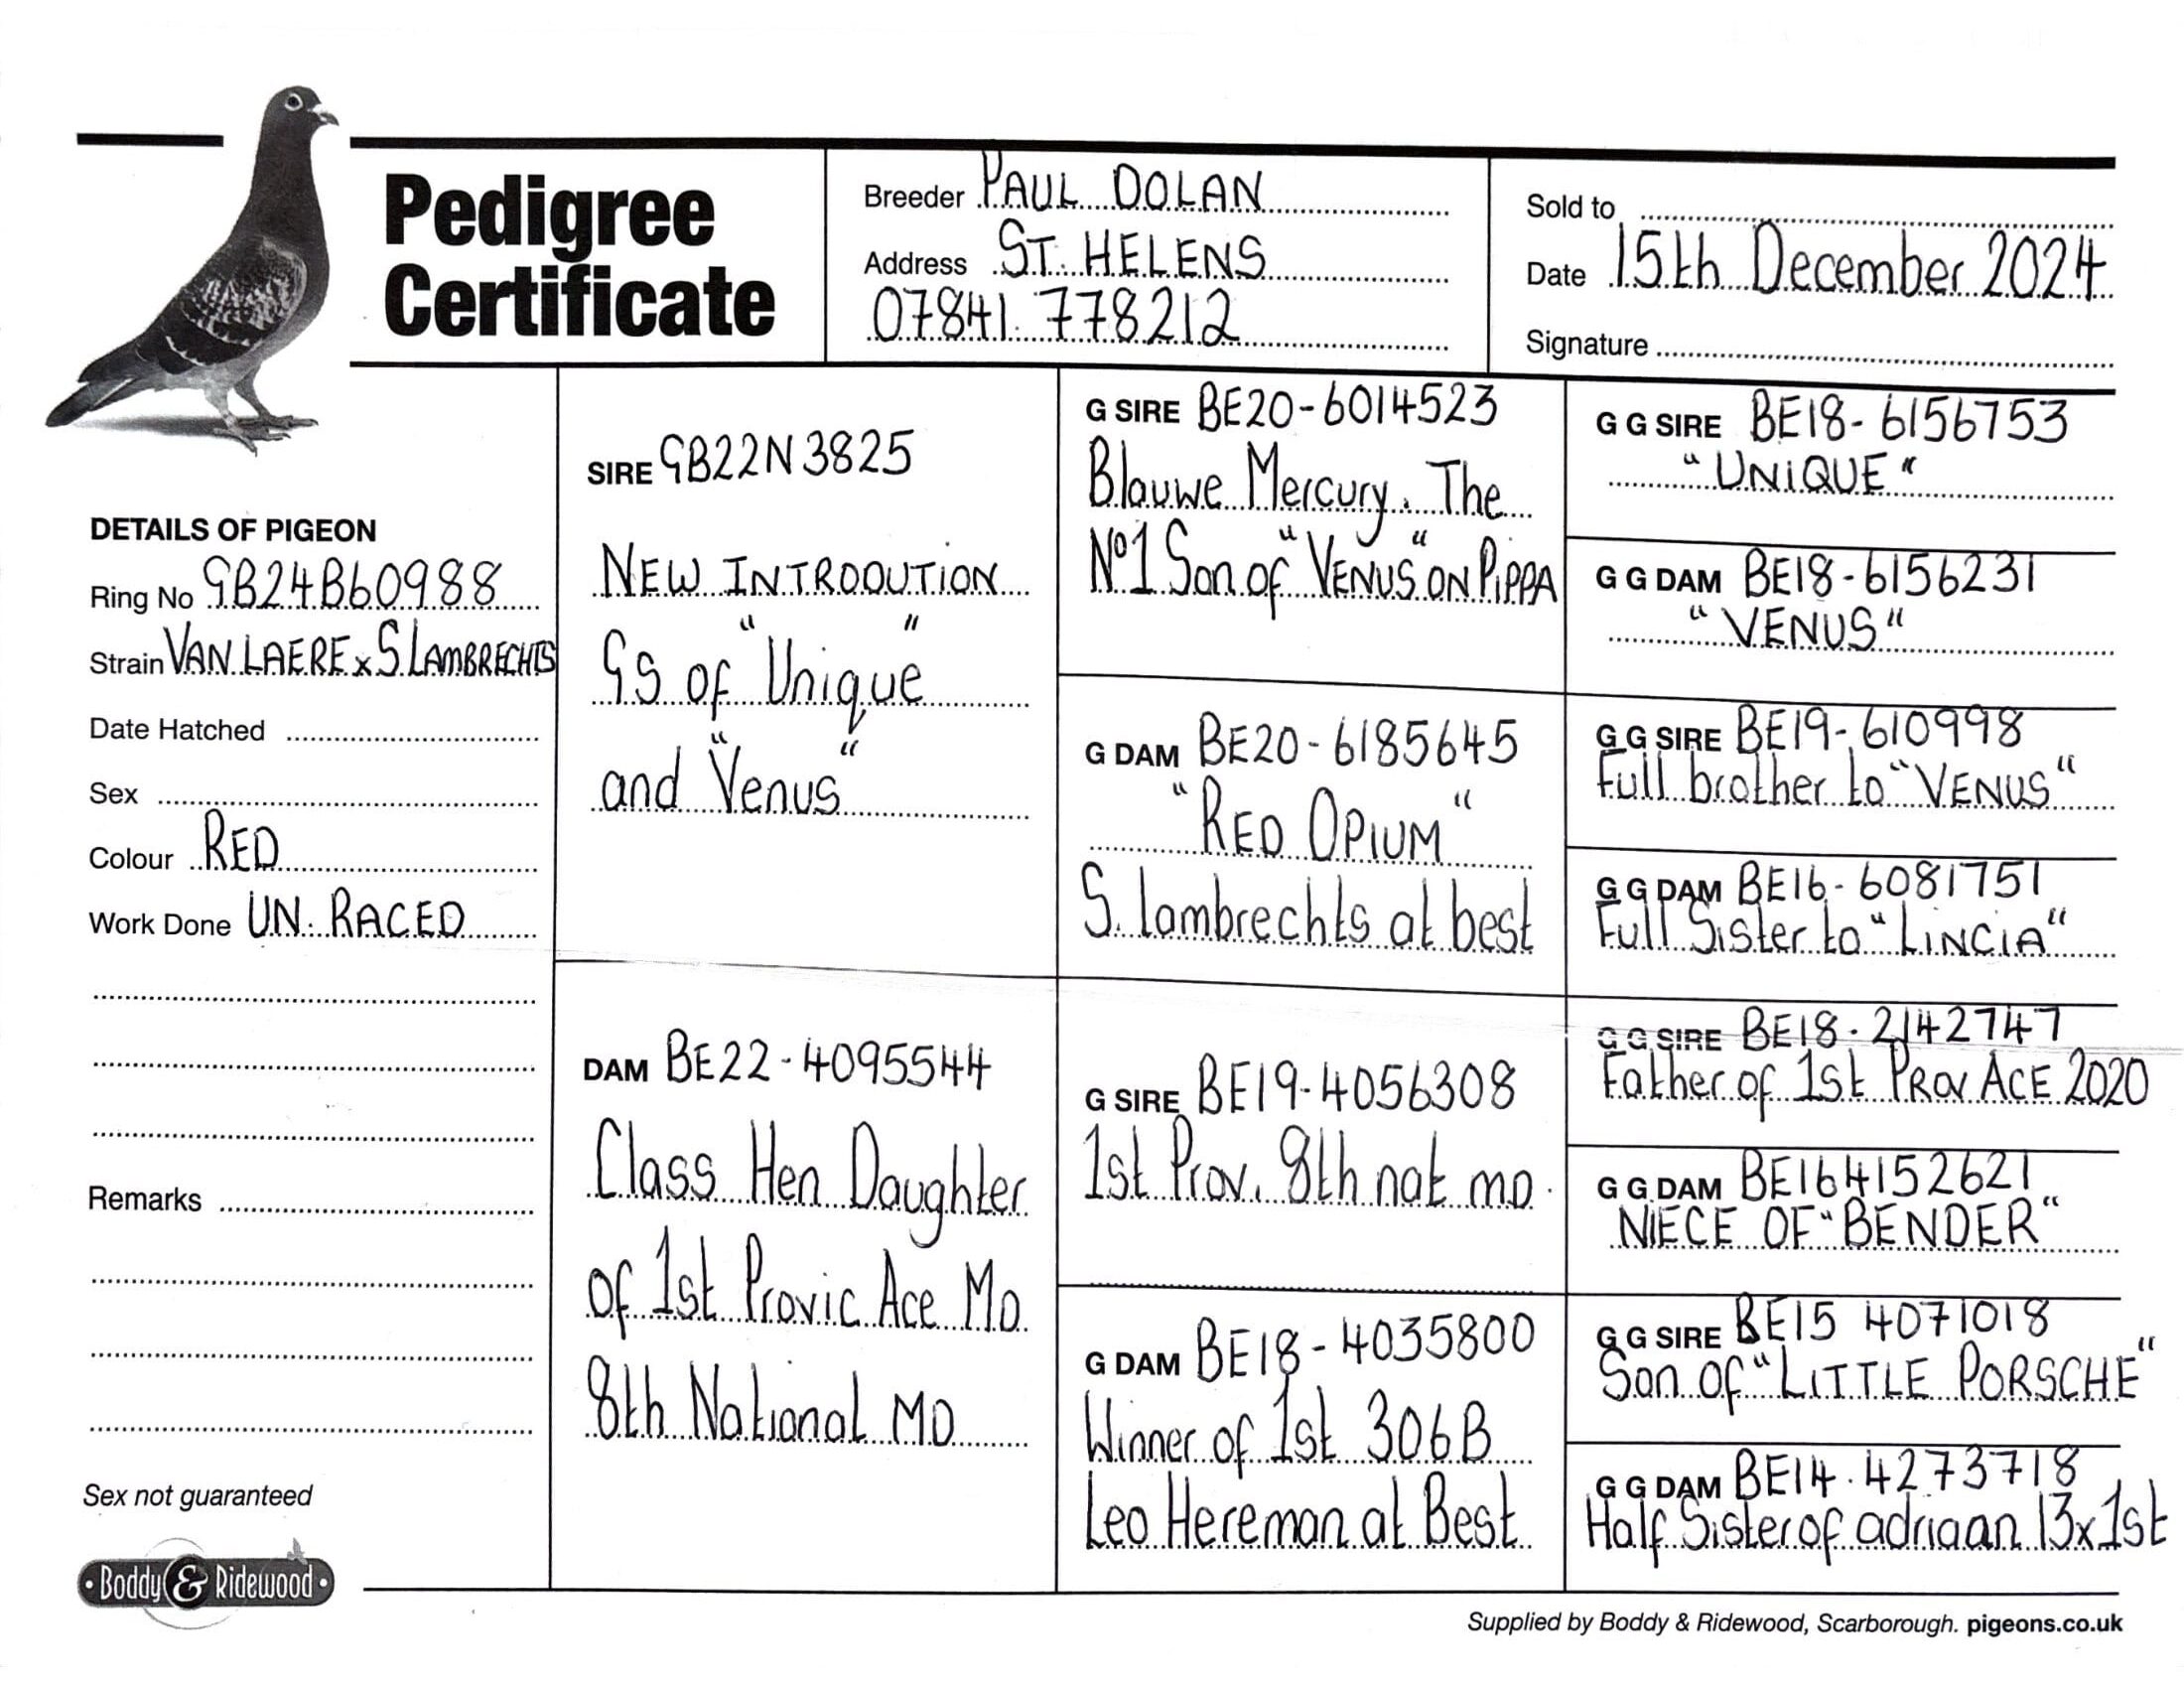 Pedigree
Certificate
Breeder PAUL DOLAN
Address ST. HELENS
07841 778212
Sold to
Date 15th December 2024
Signature
DETAILS OF PIGEON
Ring No GB24B60988
Strain VAN LAERE x S LAMBRECHTS
Date Hatched
Sex
Colour RED
Work Done UN. RACED
Remarks
Sex not guaranteed
Boddy & Ridewood
SIRE GB22N3825
NEW INTRODUTION
GS of "Unique"
and "Venus"
DAM BE22-4095544
Class Hen Daughter
of 1st Provic Ace MD
8th National MD
G SIRE BE20-6014523
Blauwe Mercury. The
No1 Son of "VENUS" ON PiPPA
G DAM BE20-6185645
"RED OPIUM"
S. lambrechts at best
G SIRE BE19-4056308
1st Prov. 8th nat mD.
G DAM BE18-4035800
Winner of 1st 306B
Leo Hereman at Best
G G SIRE BE18-6156753
"UNiQUE"
G G DAM BE18-6156231
"VENUS"
G G SIRE BE19-610998
Full brother to "VENUS"
G G DAM BE16-6081751
Full Sister to "LiNCIA"
G G SIRE BE18-2142747
Father of 1st PROV ACE 2020
G G DAM BE164152621
NIECE OF "BENDER"
G G SIRE BE15 4071018
Son of "LiTTLE PORSCHE"
G G DAM BE14.4273718
Half Sister of adriaan 13x1st
Supplied by Boddy & Ridewood, Scarborough. pigeons.co.uk